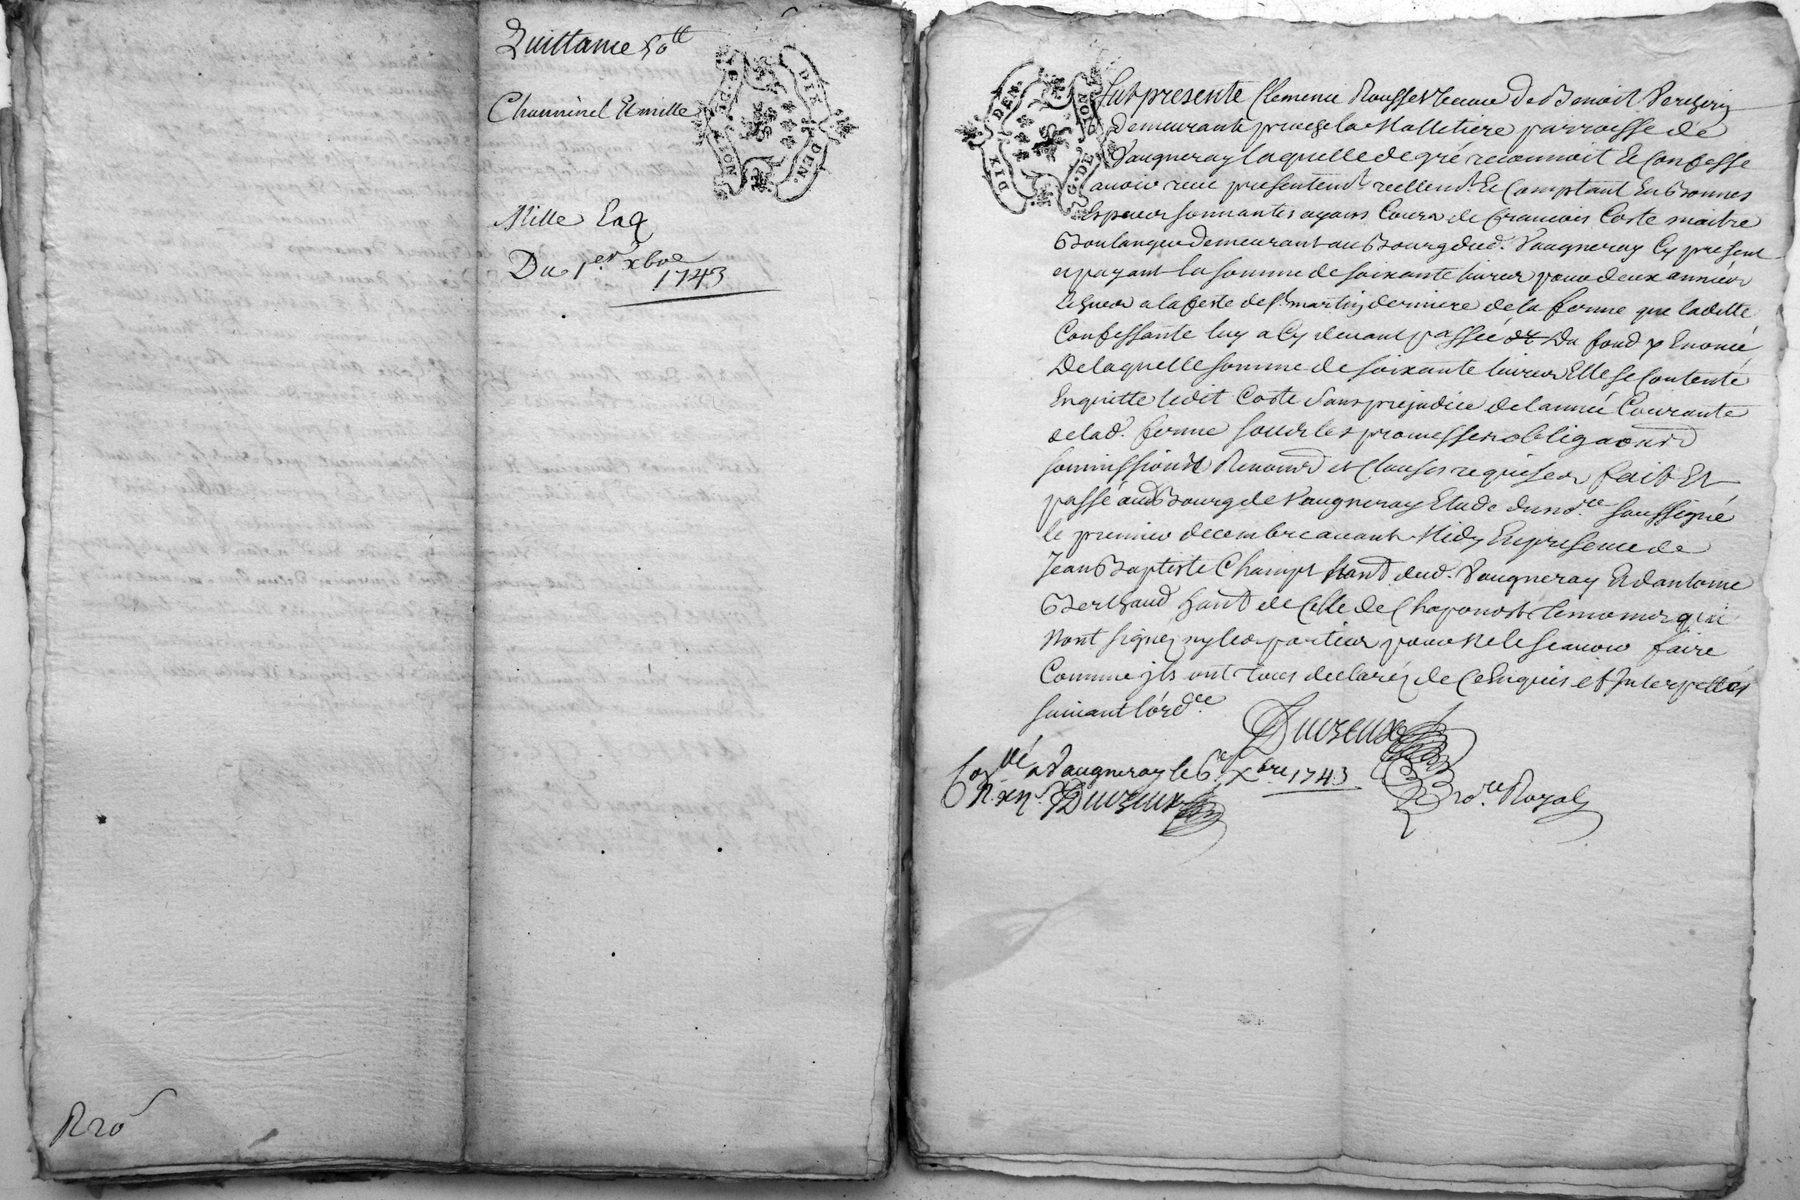 Quittance 50tt
Channinel Et mille
G. DE LION
DIX DEN.
Mille Enq
Du 1er xbre
1743
R 20s
DIX DEN.
G. DE LION
fut presente Clemence Rousset veuve de Benoit
demeurante parroisse de
Vaugneray laquelle de gré reconnoit Et Confesse
avoir receu presentemt reellemt Et Comptant En Bonnes
Especes sonnantes ayans Cours de francois Coste maitre
Boulanger demeurant au Bourg dud. Vaugneray Cy present
et payant la somme de soixante livres pour deux années
echues a la feste de st martin derniere de la ferme que laditte
Confessante luy a Cy devant passée du fond y Enoncé
De laquelle somme de soixante livres Elle se Contente
En quitte ledit Coste sans prejudice de lannée Courante
de lad. ferme sous les promesses obligaons
soumissions Renons et Clauses requises fait Et
passé aud Bourg de Vaugneray Etude du nore soussigné
le premier decembre avant Midy En presence de
Jean Baptiste hant dud. Vaugneray Et dantoine
hant de Celle de Chaponost temoins qui
nont signez ny les parties pour ne le scavoir faire
Comme jls ont tous declaréz de Ce Enquis et Interpellés
suivant lordce
Duvreux
nore Royal
Conllé a Vaugneray le 6e xbre 1743
Duvreux